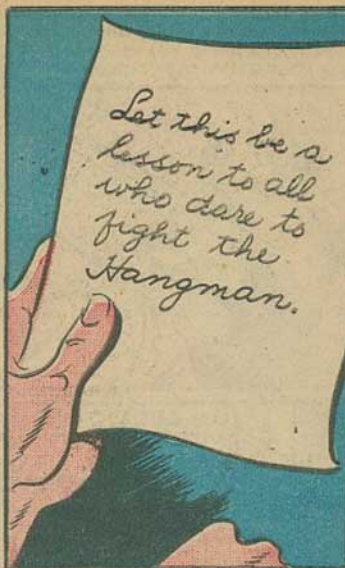 Let this be a
lesson to all
who dare to
fight the
Hangman.